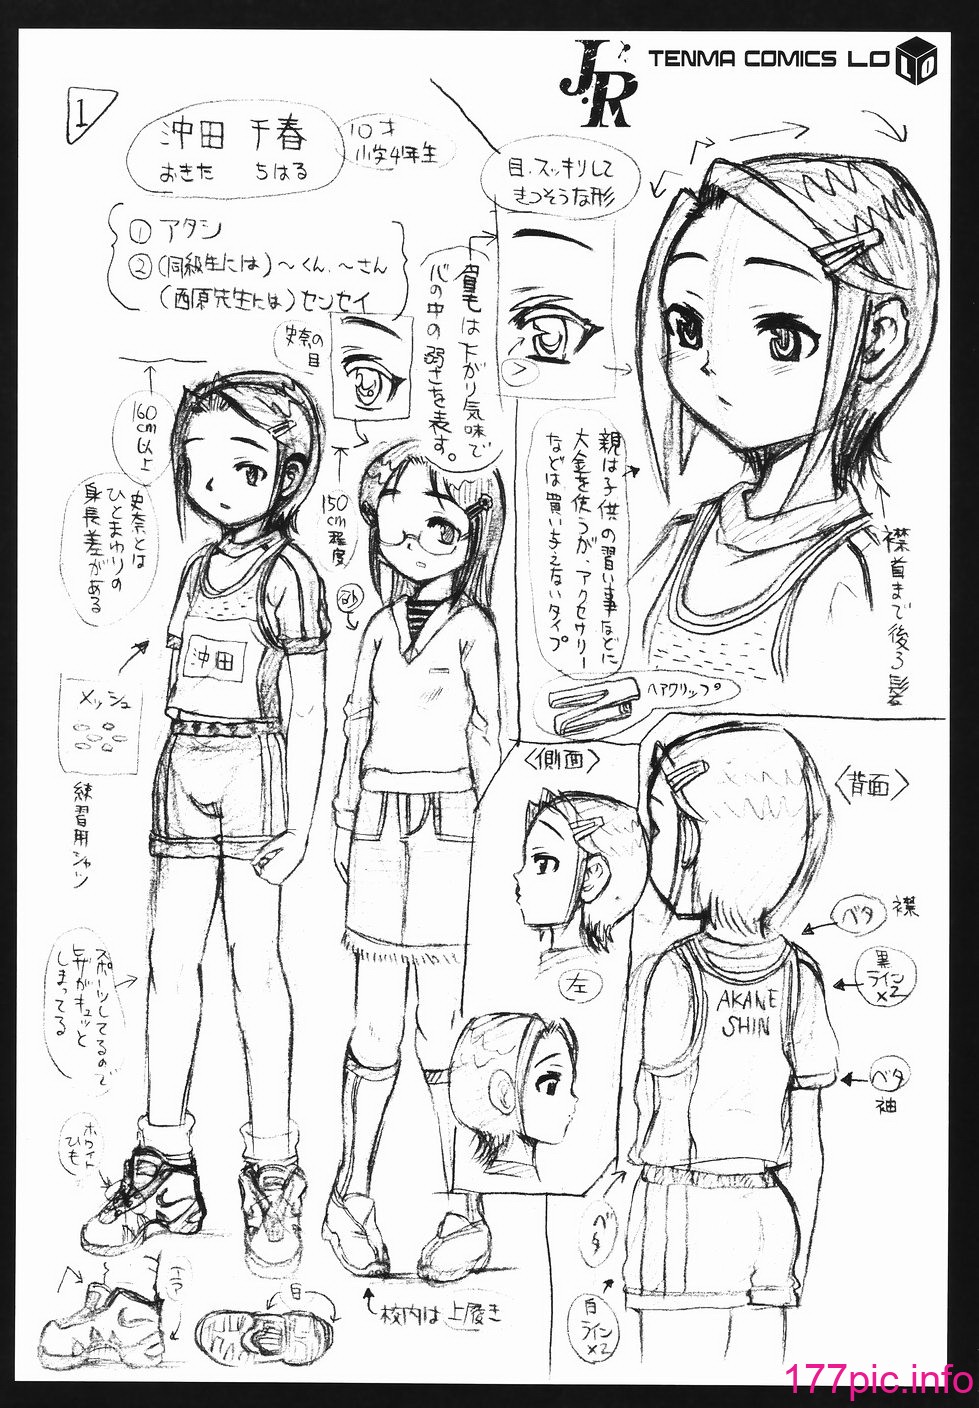 JR
TENMA COMICS LO
LO
1
沖田 千春
おきた ちはる
10才
小学4年生
① アタシ
② (同級生には)～くん、～さん
(西原先生には)センセイ
目、スッキリして
きつそうな形
眉毛は下がり気味で
心の中の弱さを表す。
史奈の
目
160
cm
以上
史奈とは
ひとまわりの
身長差がある
150
cm
程度
親は子供の習い事などに
大金を使うが、アクセサリー
などは買い与えないタイプ
襟首まで後ろ髪
ヘアクリップ
沖田
メッシュ
練習用シャツ
〈側面〉
〈背面〉
左
ベタ 襟
黒
ライン
×2
AKANE
SHIN
ベタ
袖
スポーツしてるので
足がキュッと
しまってる
ホワイト
ひも
ベタ
白
ライン
×2
白
校内は上履き
177pic.info